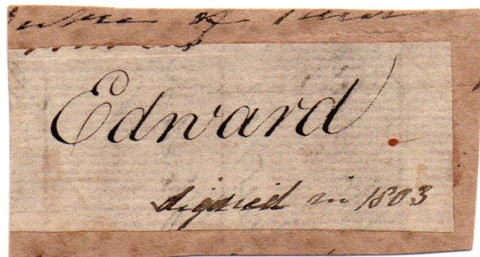 of
Edward
signed in 1803